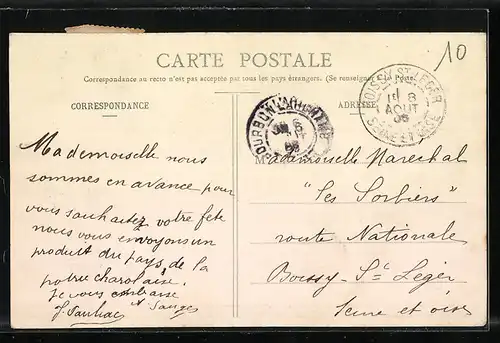 10
CARTE POSTALE
Correspondance au recto n'est pas acceptée par tous les pays étrangers. (Se renseigner à la Poste.
CORRESPONDANCE
ADRESSE
BOISSY-ST-LEGER
8
AOUT
SEINE ET OISE
BOURBON-L'ARCHAMB
Mademoiselle nous
sommes en avance pour
vous souhaitez votre fête
nous vous envoyons un
produit du pays de la
notre charolaise.
Je vous embrasse
Mademoiselle Marechal
"Les Sorbiers"
route Nationale
Boissy-St Léger
Seine et oise